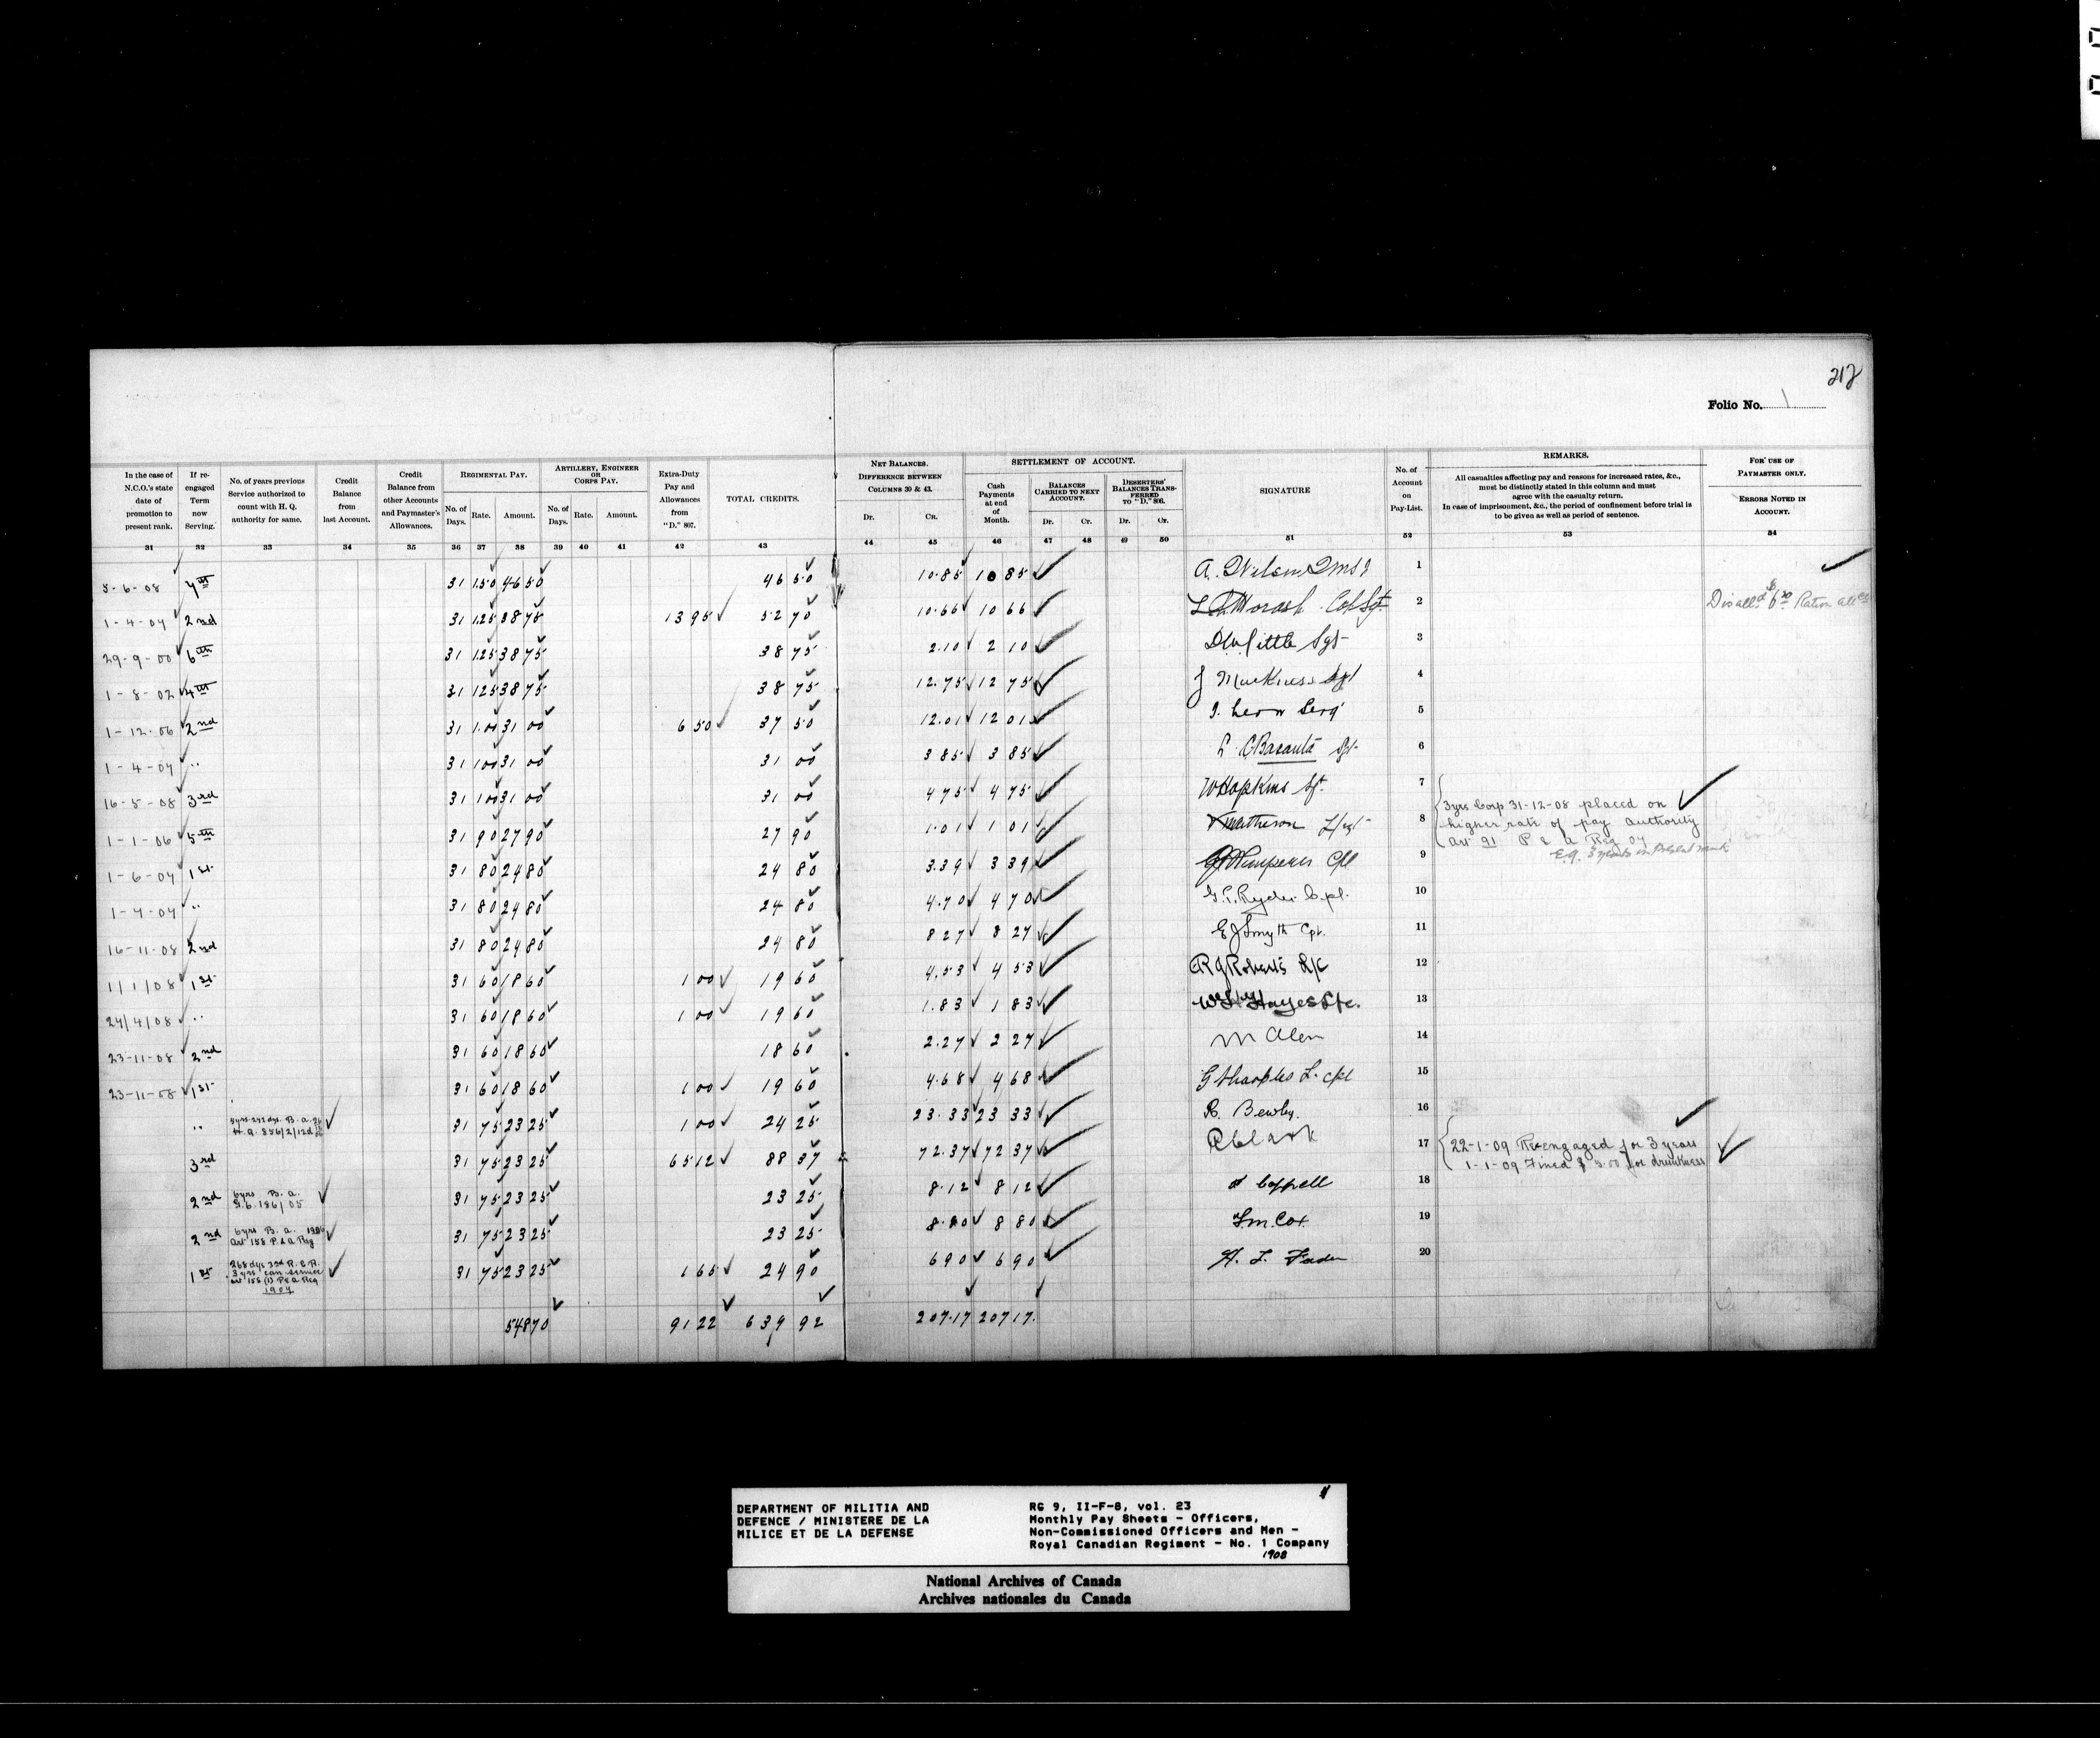 212
Folio No. 1
In the case of N.C.O.'s state date of promotion to present rank.
If re-engaged Term now Serving.
No. of years previous Service authorized to count with H. Q. authority for same.
Credit Balance from last Account.
Credit Balance from other Accounts and Paymaster's Allowances.
REGIMENTAL PAY.
No. of Days. Rate. Amount.
ARTILLERY, ENGINEER OR CORPS PAY.
No. of Days. Rate. Amount.
Extra-Duty Pay and Allowances from "D." 807.
TOTAL CREDITS.
NET BALANCES. DIFFERENCE BETWEEN COLUMNS 30 & 43.
Dr. Cr.
SETTLEMENT OF ACCOUNT.
Cash Payments at end of Month.
BALANCES CARRIED TO NEXT ACCOUNT.
Dr. Cr.
DESERTERS' BALANCES TRANSFERRED TO "D." 806.
Dr. Cr.
SIGNATURE
No. of Account on Pay-List.
REMARKS.
All casualties affecting pay and reasons for increased rates, &c., must be distinctly stated in this column and must agree with the casualty return.
In case of imprisonment, &c., the period of confinement before trial is to be given as well as period of sentence.
FOR USE OF PAYMASTER ONLY.
ERRORS NOTED IN ACCOUNT.
31 32 33 34 35 36 37 38 39 40 41 42 43 44 45 46 47 48 49 50 51 52 53 54
5-6-08 31 1.50 46 50 46 50 10.85 10 85 A. Wilson QMS 1
1-4-07 2nd 31 1.25 38 75 13 95 52 70 10.66 10 66 Col Sgt 2
29-9-00 6th 31 1.25 38 75 38 75 2.10 2 10 Little Sgt 3
1-8-02 4th 31 1.25 38 75 38 75 12.75 12 75 J 4
1-12-06 2nd 31 1.00 31 00 6 50 37 50 12.01 12 01 Serg 5
1-4-07 " 31 1 00 31 00 31 00 3 85 3 85 Sgt 6
16-5-08 3rd 31 1 00 31 00 31 00 4 75 4 75 W Hopkins Sgt. 7
1-1-06 5th 31 90 27 90 27 90 1.01 1 01 Matheson 8
3yrs Corp 31-12-08 placed on
higher rate of pay authority
Art 91 P & A Reg 07
1-6-07 1st 31 80 24 80 24 80 3.39 3 39 Cpl 9
1-7-07 " 31 80 24 80 24 80 4.70 4 70 Ryder Cpl. 10
16-11-08 2nd 31 80 24 80 24 80 8 27 8 27 E J Smyth Cpl. 11
1/1/08 1st 31 60 18 60 1 00 19 60 4.53 4 53 R J Roberts L/C 12
24/4/08 " 31 60 18 60 1 00 19 60 1.83 1 83 Hayes Pte. 13
23-11-08 2nd 31 60 18 60 18 60 2.27 2 27 M 14
23-11-08 1st 31 60 18 60 1 00 19 60 4.68 4 68 G Sharples L. cpl 15
" 31 75 23 25 1 00 24 25 23.33 23 33 R. Bewley. 16
3rd 31 75 23 25 65 12 88 37 72.37 72 37 Clark 17
22-1-09 Re-engaged for 3 years
1-1-09 Fined $ 5.00 for drunkness
2nd 6yrs B. A. 31 75 23 25 23 25 8.12 8 12 Coppell 18
2nd 6yrs B. A. 1906 Art 158 P. & A Reg 31 75 23 25 23 25 8.80 8 80 Cox 19
1st 3 yrs Can service Art 158 (1) P & A Reg 1907 31 75 23 25 1 65 24 90 6 90 6 90 H. L. Fader 20
548 70 91 22 639 92 207.17 207 17.
DEPARTMENT OF MILITIA AND
DEFENCE / MINISTERE DE LA
MILICE ET DE LA DEFENSE
RG 9, II-F-8, vol. 23
Monthly Pay Sheets - Officers,
Non-Commissioned Officers and Men -
Royal Canadian Regiment - No. 1 Company
1908
National Archives of Canada
Archives nationales du Canada